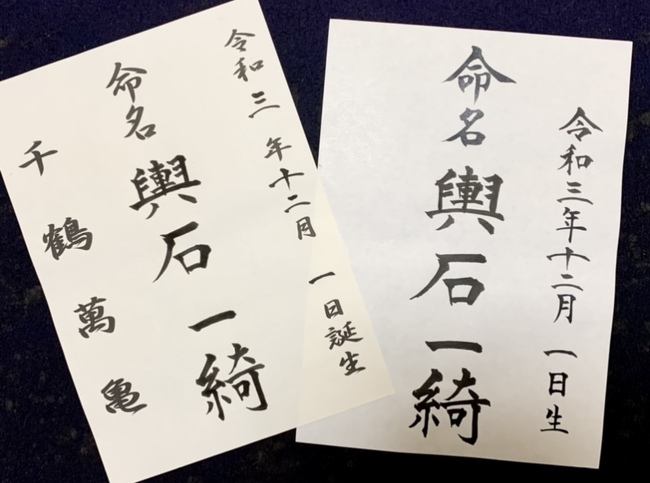 令和三年十二月一日誕生
命名
輿石一綺
千鶴萬亀
令和三年十二月一日生
命名
輿石一綺